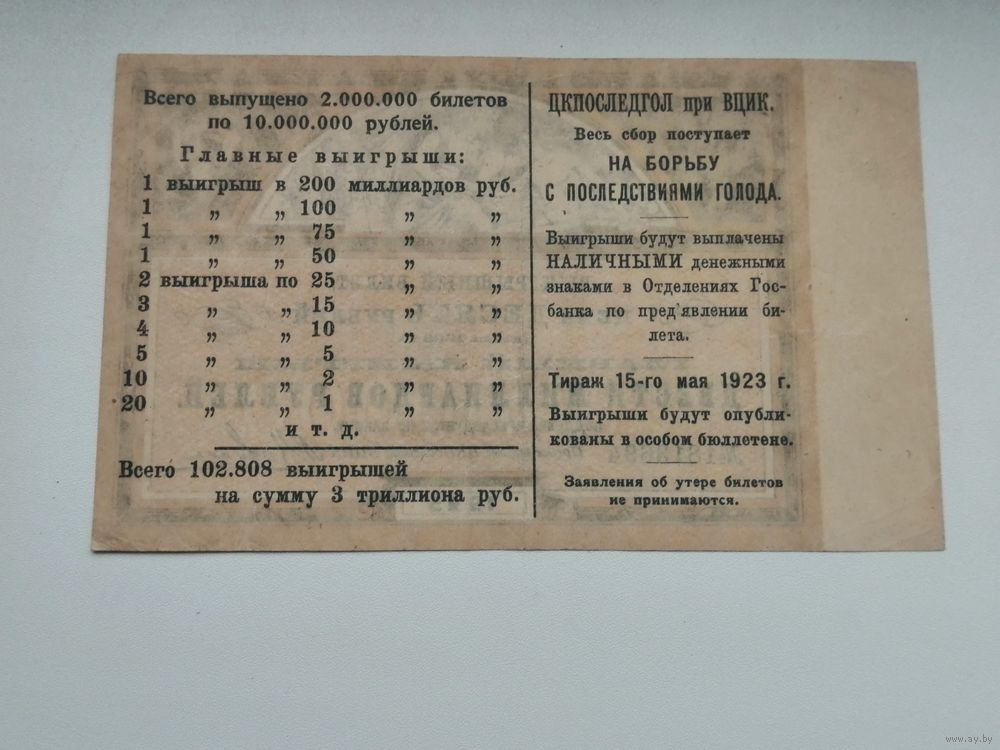 Всего выпущено 2.000.000 билетов
по 10.000.000 рублей.
Главные выигрыши:
1 выигрыш в 200 миллиардов руб.
1 „ „ 100 „ „
1 „ „ 75 „ „
1 „ „ 50 „ „
2 выигрыша по 25 „ „
3 „ „ 15 „ „
4 „ „ 10 „ „
5 „ „ 5 „ „
10 „ „ 2 „ „
20 „ „ 1 „ „
и т. д.
Всего 102.808 выигрышей
на сумму 3 триллиона руб.
ЦКПОСЛЕДГОЛ при ВЦИК.
Весь сбор поступает
НА БОРЬБУ
С ПОСЛЕДСТВИЯМИ ГОЛОДА.
Выигрыши будут выплачены
НАЛИЧНЫМИ денежными
знаками в Отделениях Гос-
банка по пред'явлении би-
лета.
Тираж 15-го мая 1923 г.
Выигрыши будут опубли-
кованы в особом бюллетене.
Заявления об утере билетов
не принимаются.
www.ay.by